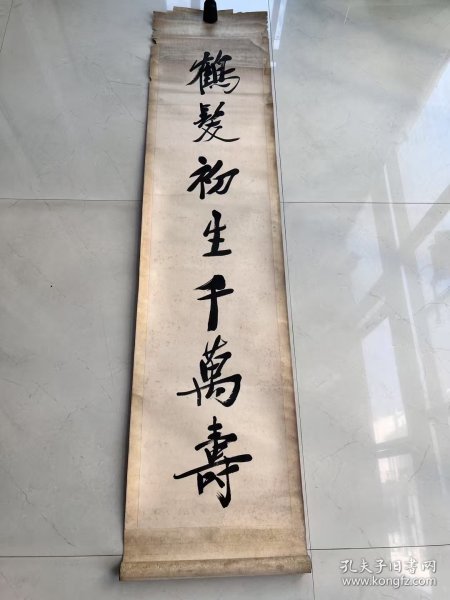 鶴髮初生千萬壽
孔夫子旧书网
www.kongfz.com